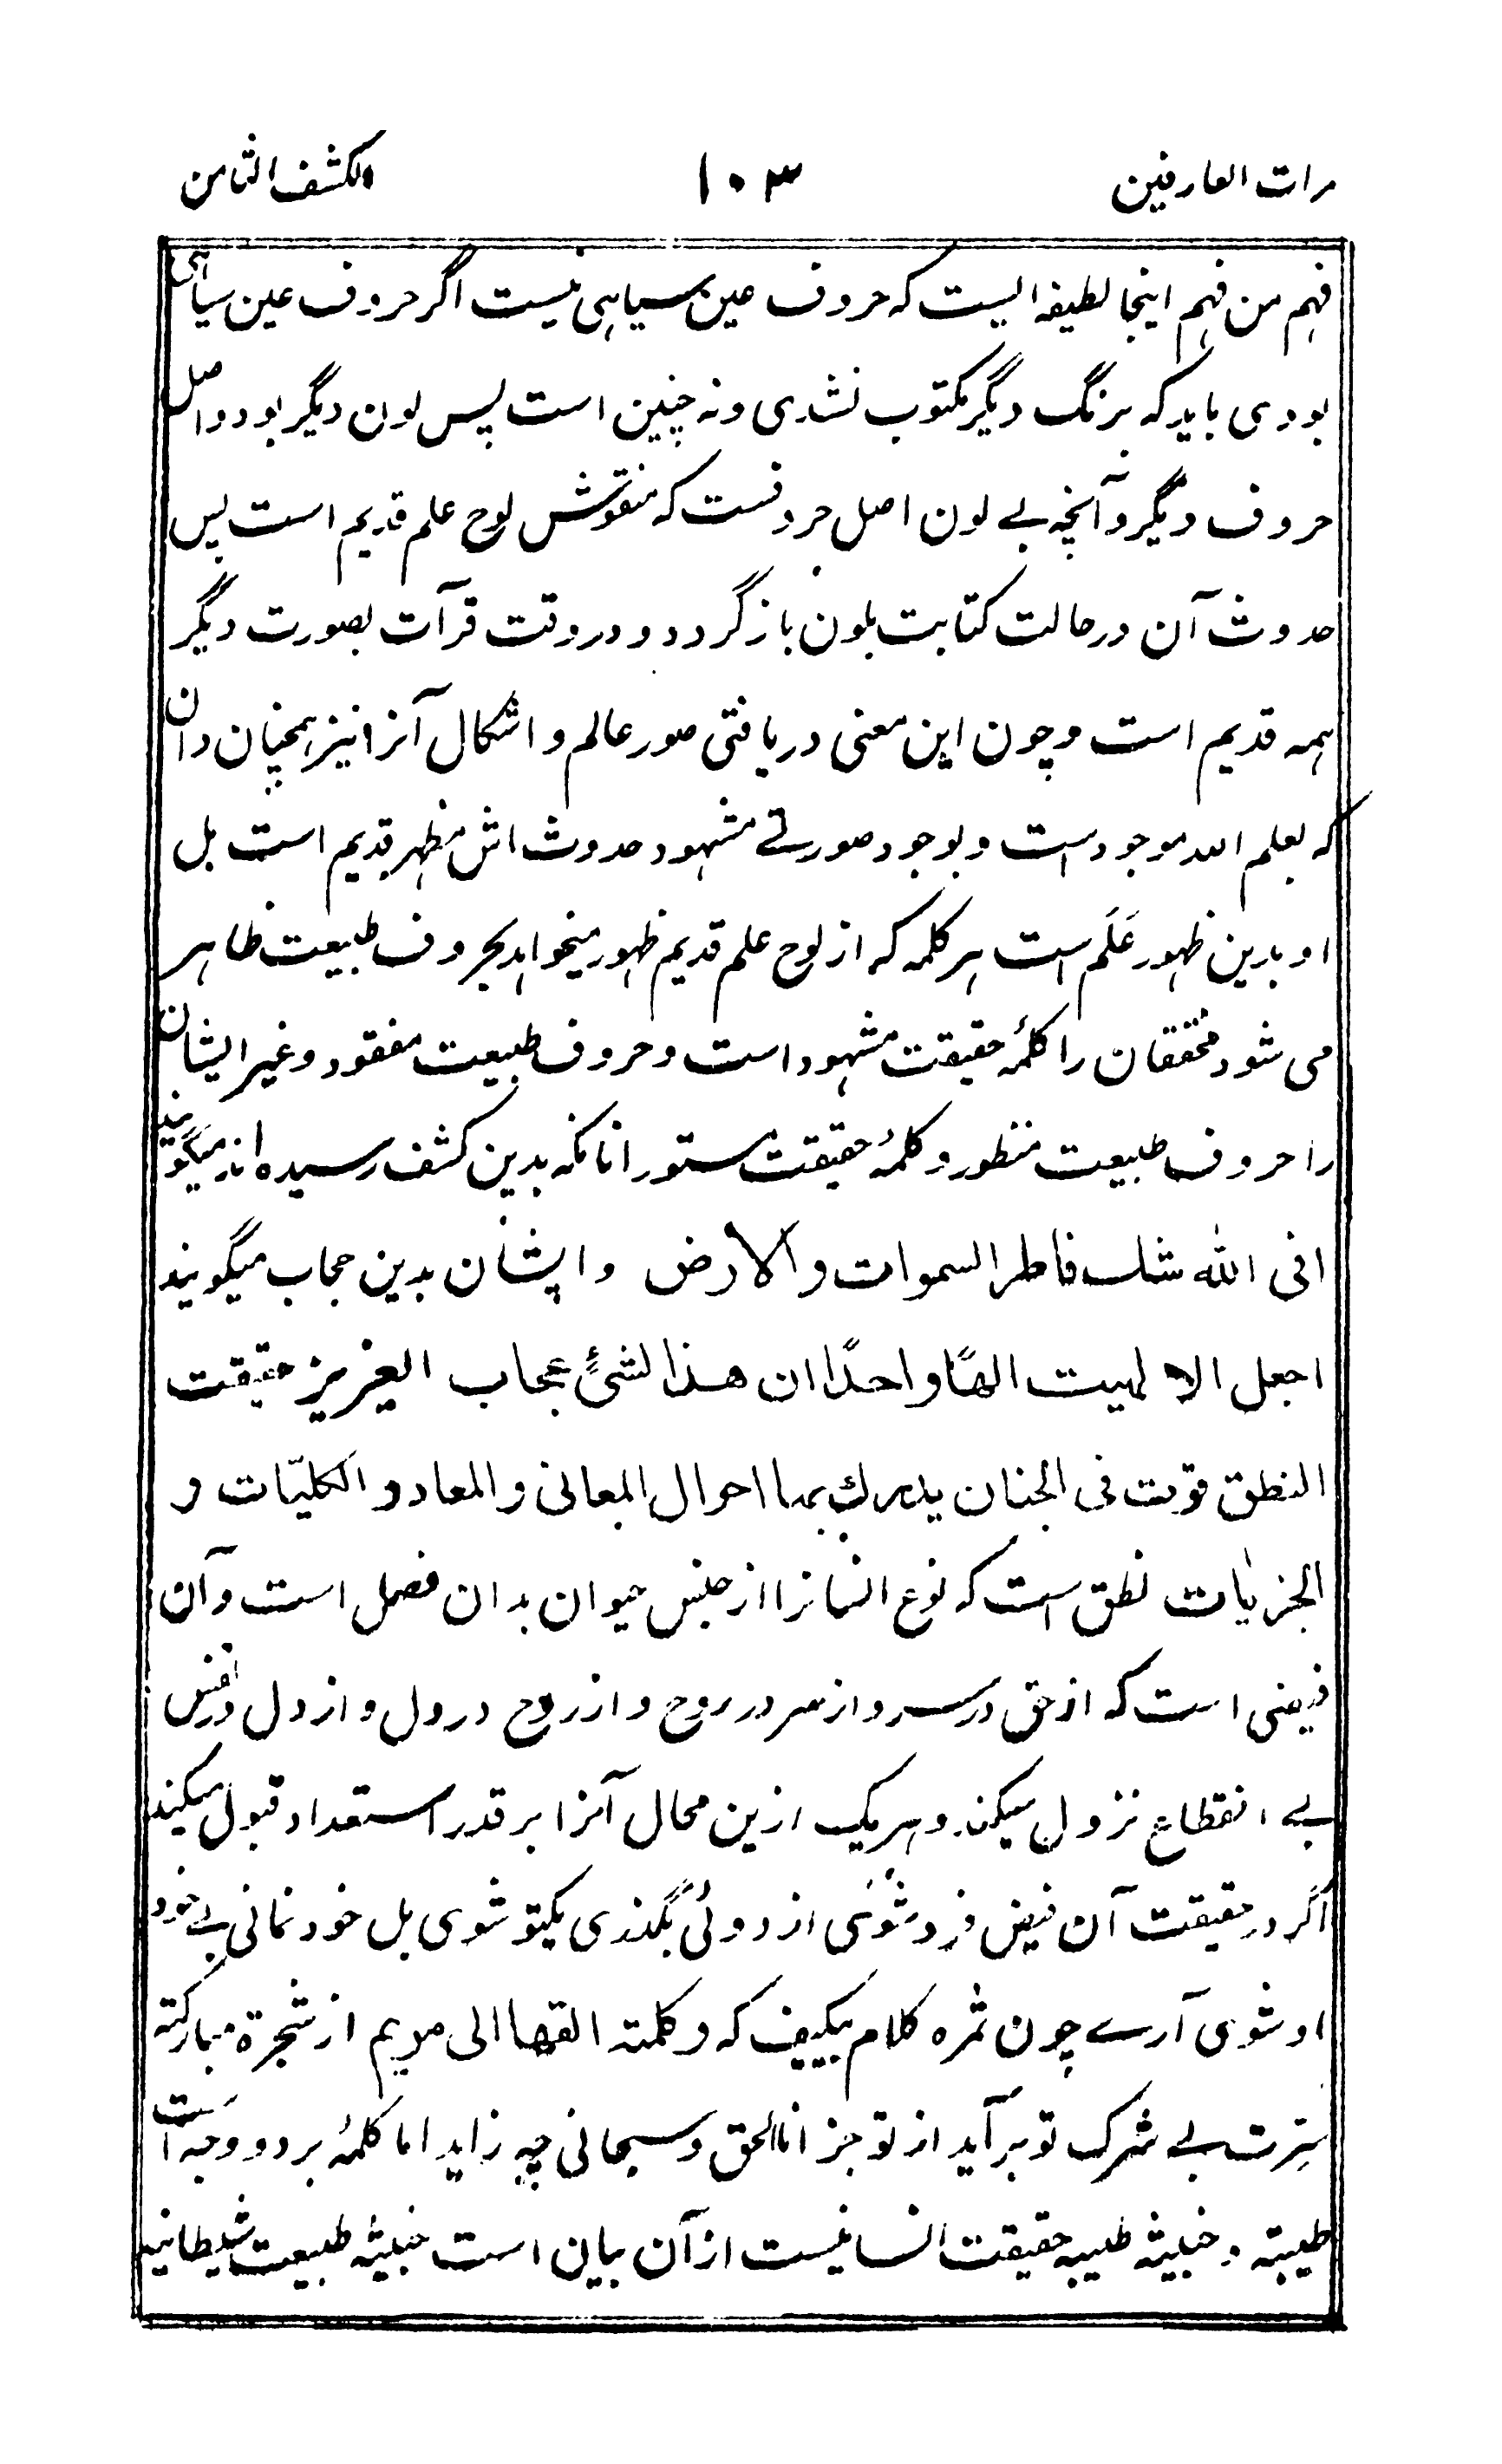 مرات العارفین ۱۰۳ الکشف الثامن
فهم من فهم اینجا لطیفه ایست که حروف عین سیاهی نیست اگر حروف عین سیاهی
بودی باید که برنگ دیگر مکتوب نشدی و نه چنین است پس لون دیگر بود و اصل
حروف دیگر و آنچه بے لون اصل حروفست که منقوش لوح علم قدیم است پس
حدوث آن در حالت کتابت بلون بازگردد و در وقت قرآت بصورت دیگر
همه قدیم است و چون این معنی دریافتی صور عالم و اشکال آنرا نیز همچنان دان
که بعلم الله موجودست و بوجود صورتے مشهود حدوث اش مظهر قدیم است بل
او بدین ظهور عَلَم است هر کلمه که از لوح علم قدیم ظهور میخواهد بحروف طبیعت ظاهر
می شود محققان را کلمۂ حقیقت مشهود است و حروف طبیعت مفقود و غیر ایشان
را حروف طبیعت منظور و کلمۂ حقیقت مستور انانکه بدین کشف رسیده اند میگویند
افی الله شك فاطر السموات والارض و ایشان بدین حجاب میگویند
اجعل الالهیت الهًا واحدًا ان هذا لشئٌ عجاب العزیز حقیقت
النطق قوت فی الجنان یدرك بها احوال المعانی والمعاد و الکلیّات و
الجزیات نطق ست که نوع انسانرا از جنس حیوان بدان فصل است و آن
فیضی است که از حق در سر و از سر در روح و از روح در دل و از دل در نفس
بے انقطاع نزول میکند و هر یک ازین محال آنرا بر قدر استعداد قبول میکند
اگر در حقیقت آن فیض فرد شوی از دوئی بگذری یکتو شوی بل خود نمانی بے خود
او شوی آرے چون ثمره کلام بیکیف که و کلمته القها الی مریم از شجرة مبارکته
سِرّت بے شرک تو برآید از تو جز اناالحق و سبحانی چه زاید اما کلمۂ بر دو وجه است
طیبته و خبیثه طیبه حقیقت انسانیست از آن بیان است خبیثه طبیعت شیطانیه